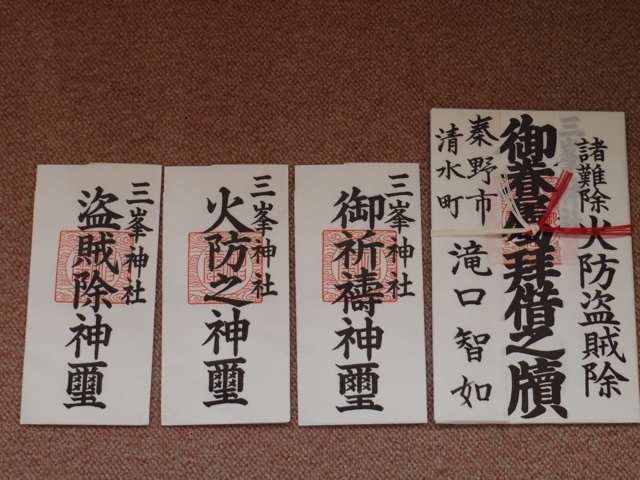 諸難除火防盗賊除
御眷属拝借之牘
秦野市
清水町
滝口智如
三峯神社
御祈禱神璽
三峯神社
火防之神璽
三峯神社
盗賊除神璽